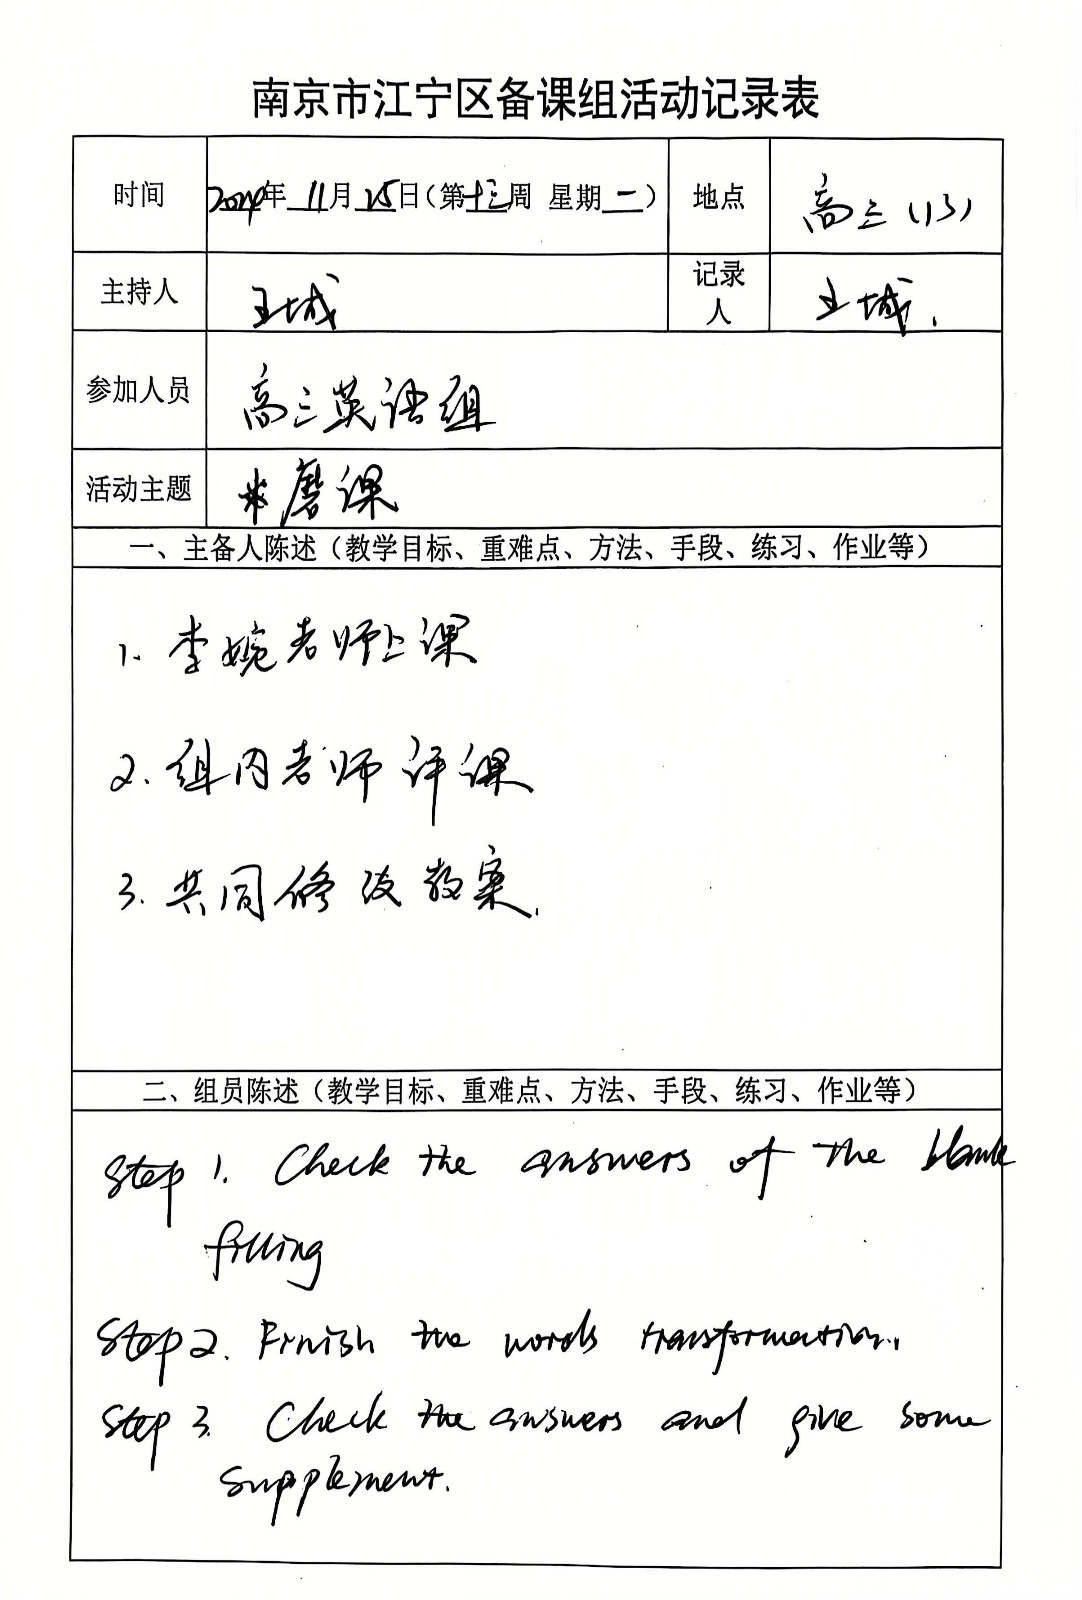 南京市江宁区备课组活动记录表
时间 2024年 11月 25日(第十三周 星期 二) 地点 高三(13)
主持人 王城 记录人 王城.
参加人员 高三英语组
活动主题 磨课
一、主备人陈述(教学目标、重难点、方法、手段、练习、作业等)
1. 李婉老师上课
2. 组内老师评课
3. 共同修改教案.
二、组员陈述(教学目标、重难点、方法、手段、练习、作业等)
Step 1. Check the answers of the blank
filling
Step 2. Finish the words transformation.
Step 3. Check the answers and give some
supplement.